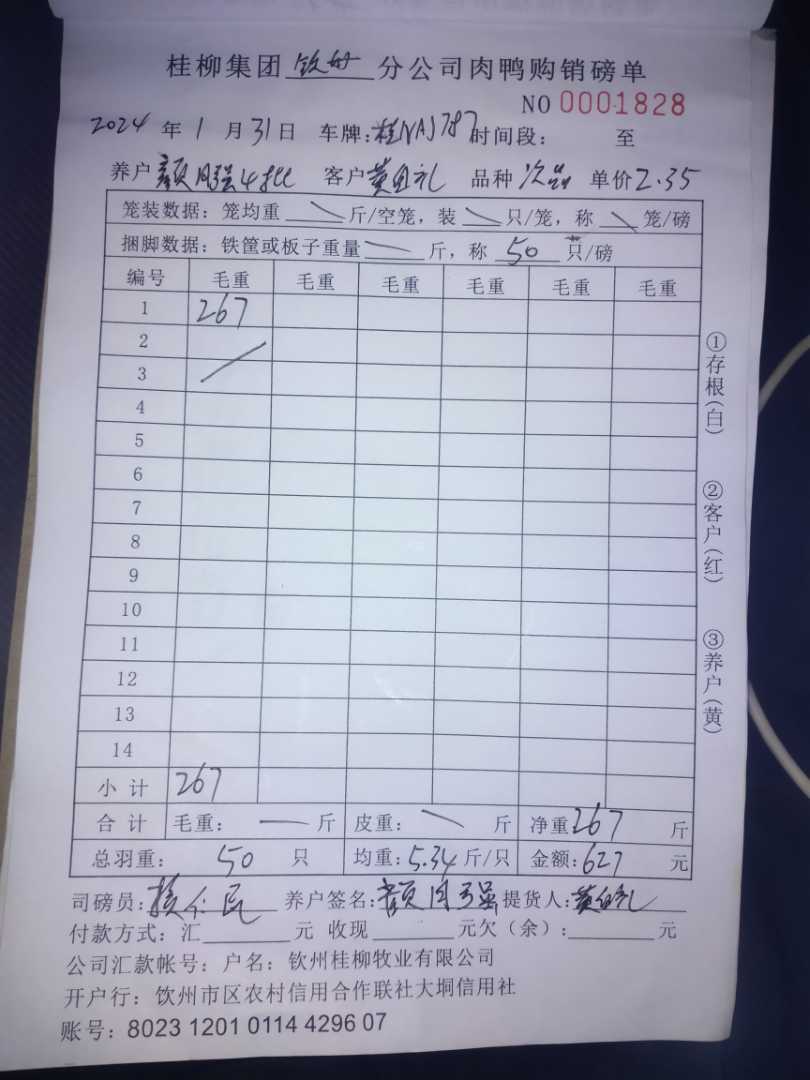 桂柳集团 钦州 分公司肉鸭购销磅单
NO 0001828
2024 年 1 月 31 日 车牌: 桂NAJ787 时间段: 至
养户 颜 强4批 客户 黄 礼 品种 次品 单价 2.35
笼装数据: 笼均重 斤/空笼, 装 只/笼, 称 笼/磅
捆脚数据: 铁筐或板子重量 斤, 称 50 只/磅
编号 毛重 毛重 毛重 毛重 毛重 毛重
1 267
2
3
4
5
6
7
8
9
10
11
12
13
14
小计 267
合计 毛重: 斤 皮重: 斤 净重 267 斤
总羽重: 50 只 均重: 5.34 斤/只 金额: 627 元
司磅员: 民 养户签名: 颜 强 提货人: 黄 礼
付款方式: 汇 元 收现 元欠(余): 元
公司汇款帐号: 户名: 钦州桂柳牧业有限公司
开户行: 饮州市区农村信用合作联社大垌信用社
账号: 8023 1201 0114 4296 07
①存根(白)
②客户(红)
③养户(黄)